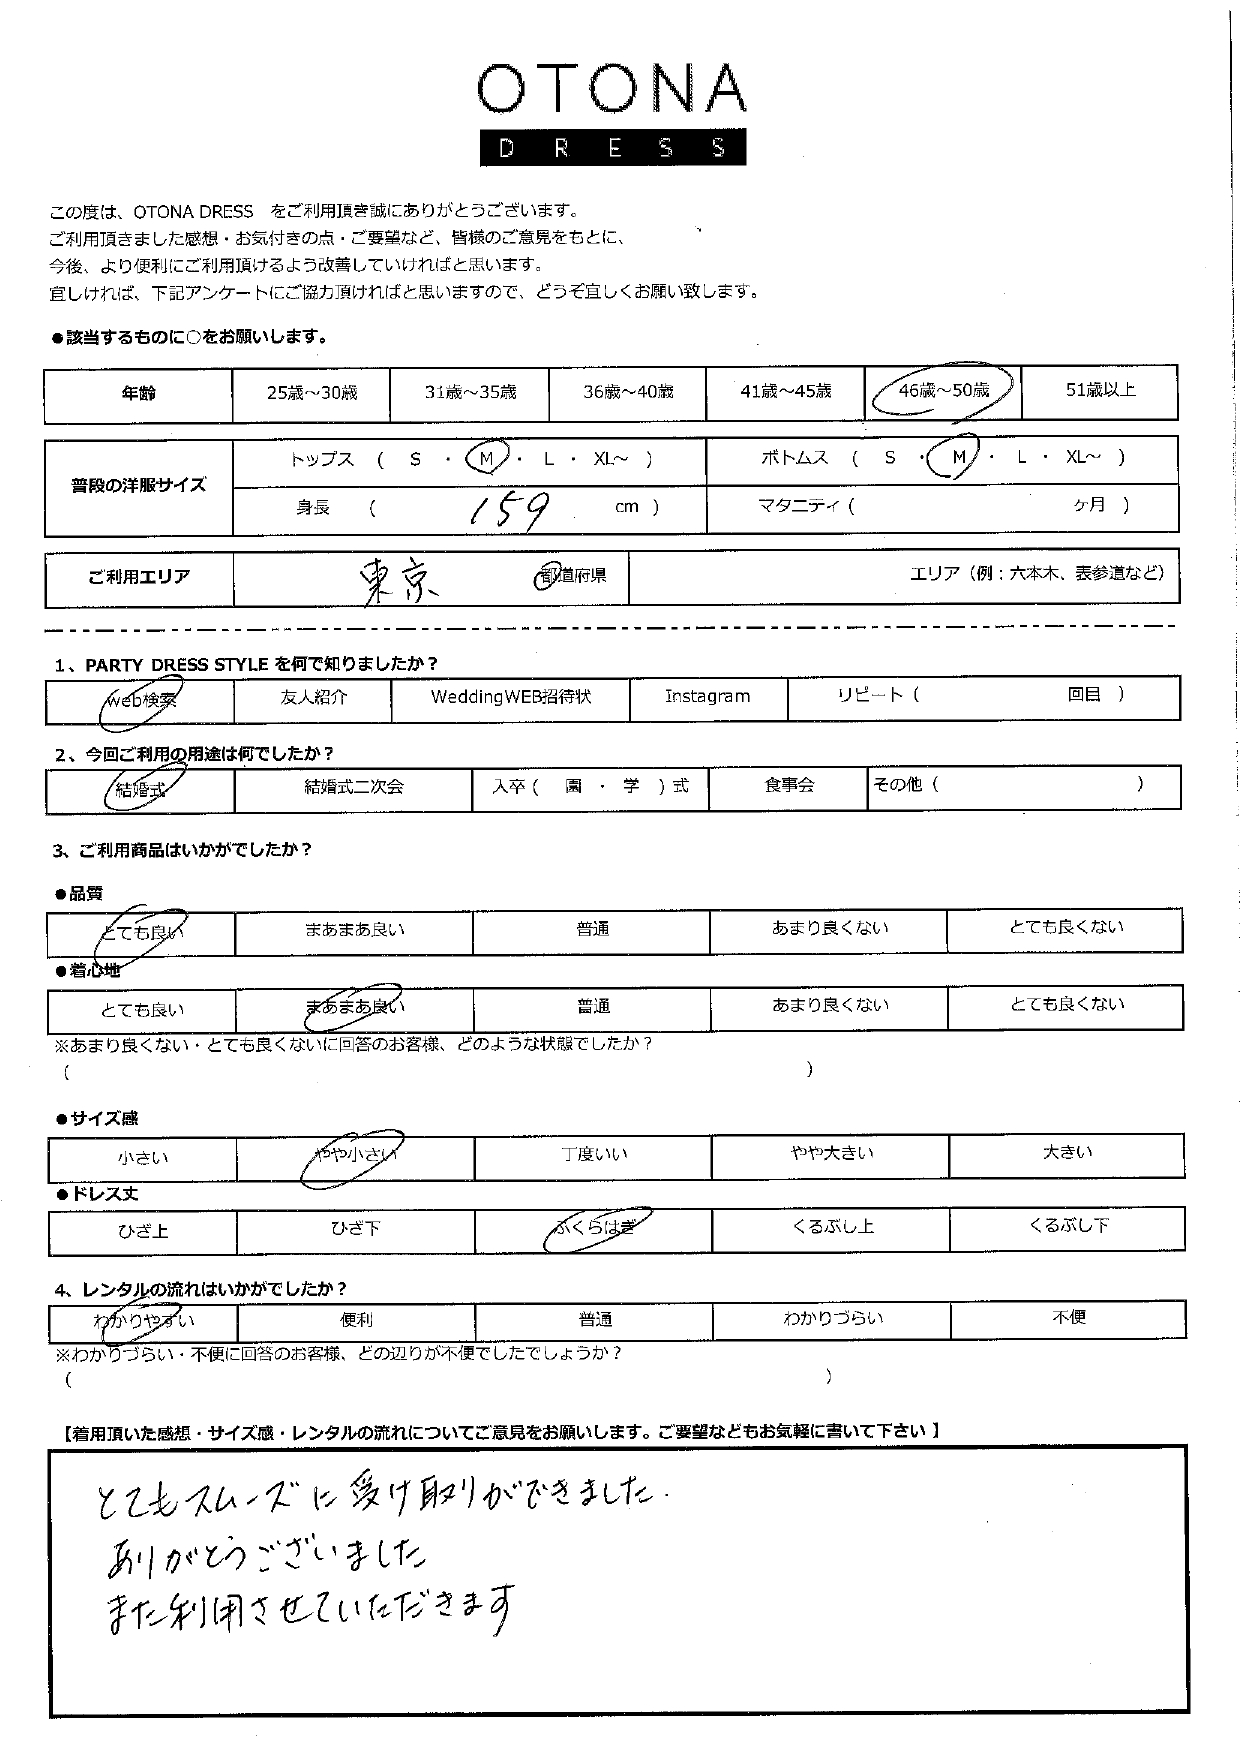 OTONA
DRESS
この度は、OTONA DRESS をご利用頂き誠にありがとうございます。
ご利用頂きました感想・お気付きの点・ご要望など、皆様のご意見をもとに、
今後、より便利にご利用頂けるよう改善していければと思います。
宜しければ、下記アンケートにご協力頂ければと思いますので、どうぞ宜しくお願い致します。
●該当するものに○をお願いします。
年齢 25歳～30歳 31歳～35歳 36歳～40歳 41歳～45歳 46歳～50歳 51歳以上
普段の洋服サイズ トップス ( S ・ M ・ L ・ XL～ ) ボトムス ( S ・ M ・ L ・ XL～ )
身長 ( 159 cm ) マタニティ ( ヶ月 )
ご利用エリア 東京 都道府県 エリア（例：六本木、表参道など）
1、PARTY DRESS STYLE を何で知りましたか？
web検索 友人紹介 WeddingWEB招待状 Instagram リピート ( 回目 )
2、今回ご利用の用途は何でしたか？
結婚式 結婚式二次会 入卒 ( 園 ・ 学 ) 式 食事会 その他 ( )
3、ご利用商品はいかがでしたか？
●品質
とても良い まあまあ良い 普通 あまり良くない とても良くない
●着心地
とても良い まあまあ良い 普通 あまり良くない とても良くない
※あまり良くない・とても良くないに回答のお客様、どのような状態でしたか？
( )
●サイズ感
小さい やや小さい 丁度いい やや大きい 大きい
●ドレス丈
ひざ上 ひざ下 ふくらはぎ くるぶし上 くるぶし下
4、レンタルの流れはいかがでしたか？
わかりやすい 便利 普通 わかりづらい 不便
※わかりづらい・不便に回答のお客様、どの辺りが不便でしたでしょうか？
( )
【着用頂いた感想・サイズ感・レンタルの流れについてご意見をお願いします。ご要望などもお気軽に書いて下さい 】
とてもスムーズに受け取りができました.
ありがとうございました
また利用させていただきます